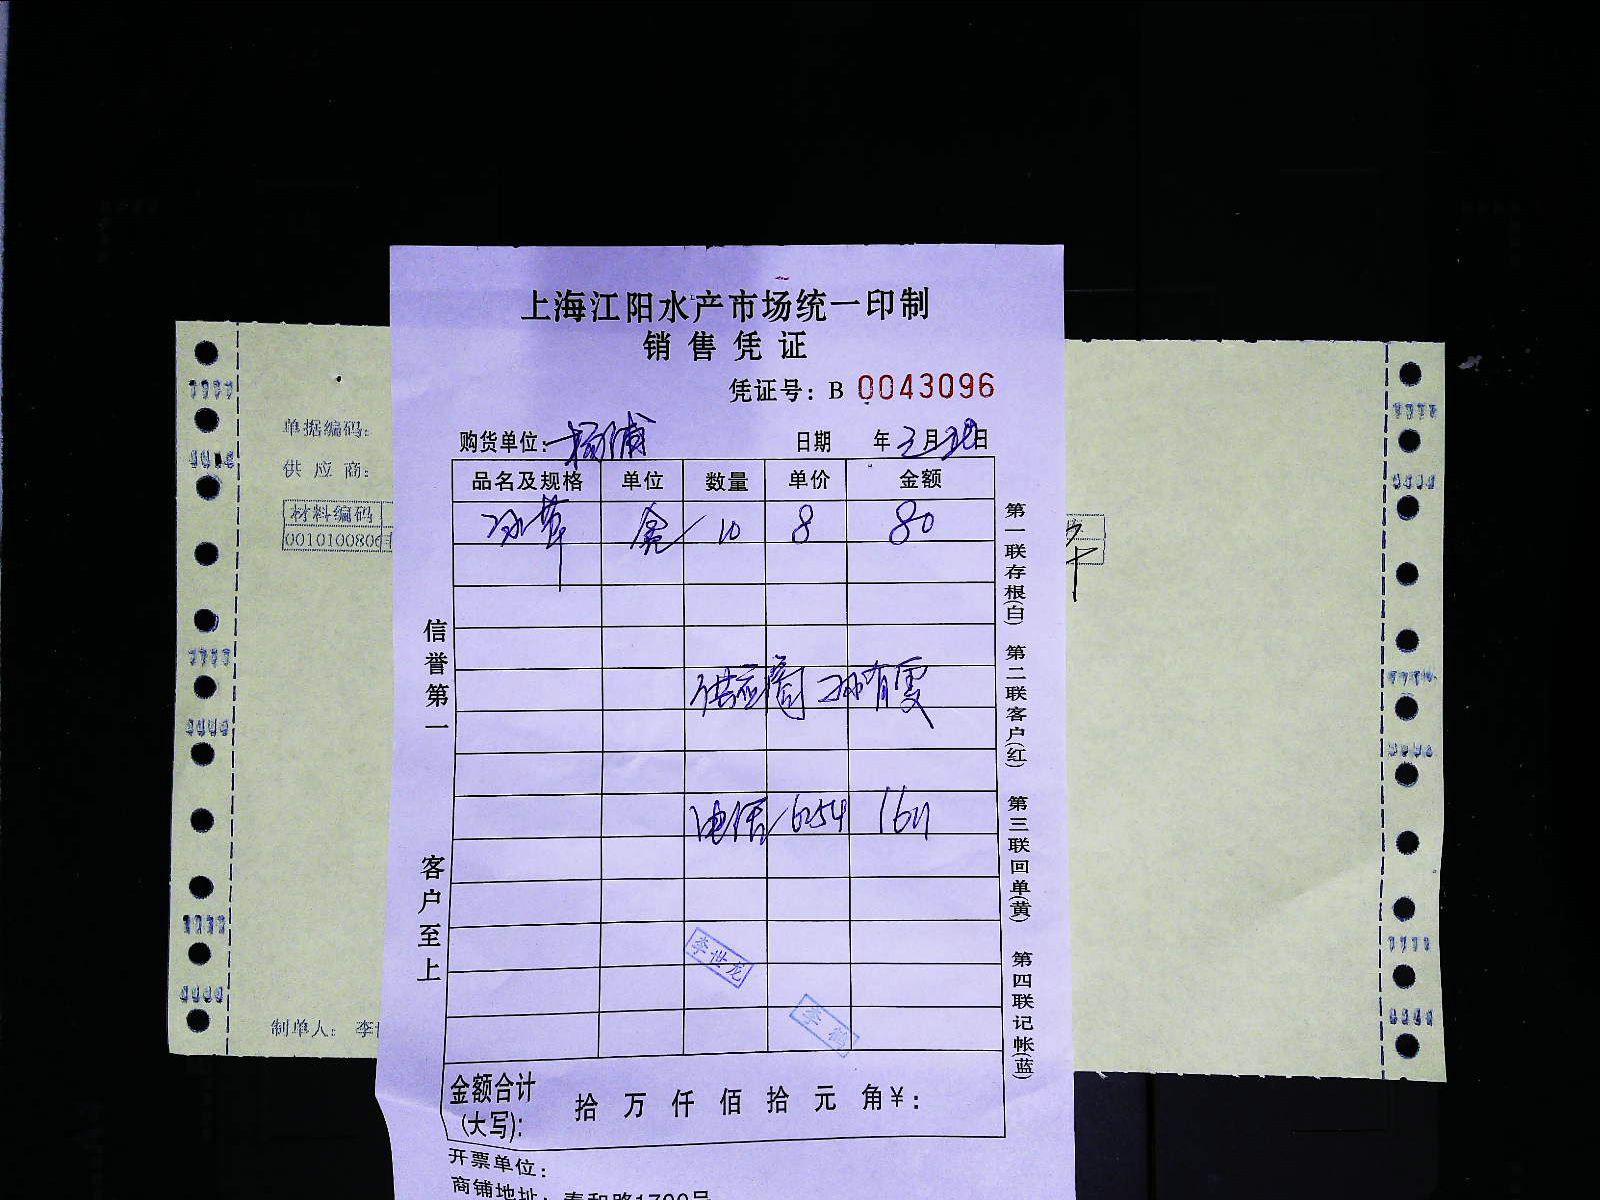 上海江阳水产市场统一印制
销售凭证
凭证号：B 0043096
购货单位：杨浦 日期 年3月29日
品名及规格 单位 数量 单价 金额
冰草 盒 10 8 80
供应商 孙有雯
电话 6254 1611
李世龙
李鹤
金额合计
(大写)： 拾 万 仟 佰 拾 元 角 ¥：
开票单位：
商铺地址：泰和路1700号
信誉第一
客户至上
第一联存根(白) 第二联客户(红) 第三联回单(黄) 第四联记帐(蓝)
单据编码：
供应商：
材料编码
001010080
制单人：李